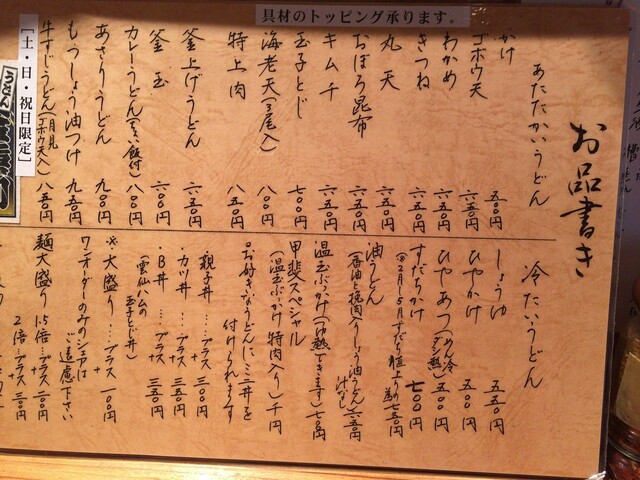 具材のトッピング承ります。
お品書き
あたたかいうどん
かけ 五〇〇円
ゴボウ天 六五〇円
わかめ 六五〇円
きつね 六五〇円
丸天 六五〇円
おぼろ昆布 六五〇円
キムチ 六五〇円
玉子とじ 七〇〇円
海老天(3尾入) 八〇〇円
特上肉 八五〇円
釜上げうどん 六五〇円
釜玉 六〇〇円
カレーうどん 八〇〇円
あさりうどん 九〇〇円
もつしょう油つけ 九五〇円
牛すじうどん(月見ゴボウ天入) 八五〇円
[土・日・祝日限定]
冷たいうどん
しょうゆ 五五〇円
ひやかけ 五〇〇円
ひやあつ(めん冷ダシ熱) 五〇〇円
すだちかけ 七〇〇円
油うどん
温玉ぶっかけ(冷熱できます) 七五〇円
甲斐スペシャル
(温玉ぶっかけ 特肉入り) 千円
◎お好きなうどんにミニ丼を
付けられます
・親子丼…プラス 三〇〇円
・カツ丼…プラス 三五〇円
・B丼…プラス 三五〇円
(雲仙ハムの
玉子とじ丼)
※大盛り…プラス 一〇〇円
ワンオーダーのみのシェアは
ご遠慮下さい
麺大盛り 1.5倍…プラス 二〇〇円
2倍…プラス 三〇〇円